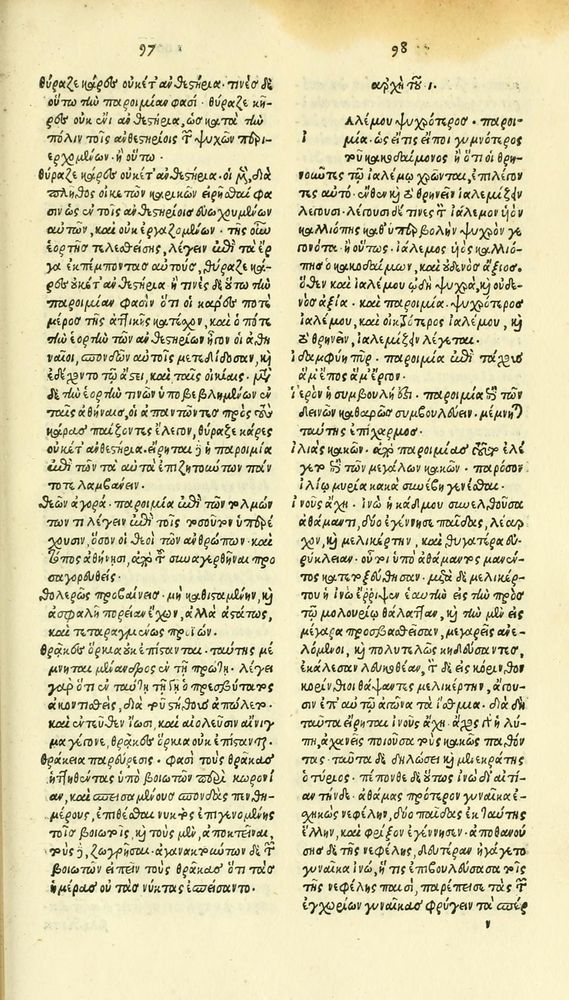 97
θύραζε κᾶρες οὐκέτ' ἀνθεστήρια. τινὲς δὲ
οὕτω τὴν παροιμίαν φασί. θύραζε κῆ-
ρες οὐκ ἔνι ἀνθεστήρια, ὡς κατὰ τὴν
πόλιν τοῖς ἀνθεστηρίοις τῶν ψυχῶν περι-
ερχομένων. ἢ οὕτω.
θύραζε κᾶρες οὐκέτ' ἀνθεστήρια. οἱ μὲν, διὰ
πλῆθος οἰκετῶν καρικῶν εἰρῆσθαι φα
σιν ὡς ἐν τοῖς ἀνθεστηρίοις εὐωχουμένων
αὐτῶν, καὶ οὐκ ἐργαζομένων. τῆς οὖν
ἑορτῆς τελεσθείσης, λέγειν ἐπὶ τὰ ἔρ
γα ἐκπέμποντας αὐτοὺς, θύραζε κᾶ-
ρες οὐκέτ' ἀνθεστήρια. ἤ τινὲς δὲ οὕτω τὴν
παροιμίαν φασὶν ὅτι οἱ κᾶρες ποτὲ
μέρος τῆς ἀττικῆς κατέχον, καὶ ὁπότε
τὴν ἑορτὴν τῶν ἀνθεστηρίων ἦγον οἱ ἀθη
ναῖοι, σπονδῶν αὐτοῖς μετεδίδοσαν, καὶ
ἐδέχοντο τῷ ἄστει, καὶ ταῖς οἰκίαις. μετὰ
δὲ τὴν ἑορτὴν τινῶν ὑποβεβλημένων ἐν
ταῖς ἀθήναις, οἱ ἀπαντῶντες πρὸς τοὺς
κᾶρας παίζοντες ἔλεγον, θύραζε κᾶρες
οὐκέτ' ἀνθεστήρια. εἴρηται δὲ ἡ παροιμία
ἐπὶ τῶν τὰ αὐτὰ ἐπιζητούντων πάν
τοτε λαμβάνειν.
θεῶν ἀγορά. παροιμία ἐπὶ τῶν τολμών
των τι λέγειν ἐπὶ τοῖς τοσοῦτον ὑπερέ
χουσιν, ὅσον οἱ θεοὶ τῶν ἀνθρώπων. καὶ
τόπος ἀθήνησι, ἀπὸ τοῦ συναγερθῆναι προ
σαγορευθείς.
θολερῶς προβαίνεις. μὴ καθισταμένην, καὶ
ἀσφαλῆ πορείαν ἔχων, ἀλλὰ ἀστάτως,
καὶ τεταραγμένως προϊών.
θρᾷκες ὅρκια οὐκ ἐπίστανται. ταύτης μέ
μνηται μένανδρος ἐν τῇ πρώτῃ. λέγει
γὰρ ὅτι ἐν ταύτῃ τῇ γῇ ὁ πρεσβύτατος
ἀκοντισθεὶς, διὰ τοῦτο ἀπώλετο.
καὶ ἐντεῦθεν ἴωσι, καὶ αἰολεῦσιν αἴνιγ
μα γέγονε, θρᾷκες ὅρκια οὐκ ἐπίστανται.
θρᾳκεία παρεύρεσις. φασὶ τοὺς θρᾷκας
ἡττηθέντας ὑπὸ βοιωτῶν περὶ κορωνί
αν, καὶ σπεισαμένους σπονδὰς πενθη-
μέρους, ἐπιθέσθαι νυκτὸς ἐπιγενομένης
τοῖς βοιωτοῖς, καὶ τοὺς μὲν, ἀποκτεῖναι,
τοὺς δὲ, ζωγρῆσαι. ἀγανακτούντων δὲ τῶν
βοιωτῶν εἰπεῖν τοὺς θρᾷκας ὅτι τὰς
ἡμέρας οὐ τὰς νύκτας ἐσπείσαντο.
98
ἀρχὴ τοῦ ι.
Ιαλέμου ψυχρότερος. παροι-
μία. ὡς εἴτις εἴποι γυμνότερος
τοῦ κακοδαίμονος ἢ ὅτι οἱ θρη-
νοῦντες τῷ ἰαλέμῳ χρῶνται, ἐπιλέγον
τες αὐτό. ἔνθεν καὶ τὸ θρηνεῖν ἰαλεμίζειν
λέγουσι. λέγουσι δέ τινες τὸν ἰάλεμον υἱὸν
καλλιόπης καθ' ὑπερβολὴν ψυχρὸν γε
γονότα. ἢ οὕτως. ἰάλεμος υἱὸς καλλιό-
πης ὁ κακοδαίμων, καὶ οὐδενὸς ἄξιος.
ὅθεν καὶ ἰαλέμου ᾠδὴ ψυχρὰ, καὶ οὐδε-
νὸς ἀξία. καὶ παροιμία. ψυχρότερος
ἰαλέμου, καὶ οἰκτρότερος ἰαλέμου, καὶ
τὸ θρηνεῖν, ἰαλεμίζειν λέγεται.
ἰδαμφύη πῦρ. παροιμία ἐπὶ τάχους
ἅμ' ἔπος ἅμ' ἔργον.
ἱερὸν ἡ συμβουλή ἐστι. παροιμία ἐπὶ τῶν
δεινῶν καθαρῶς συμβουλεύειν. μέμνηται
ταύτης ἐπίχαρμος.
ἰλιὰς κακῶν. ἀπὸ παροιμίας τοῦτο ἐλέ
γετο ἐπὶ τῶν μεγάλων κακῶν. παρόσον
ἰλίῳ μυρία κακὰ συνέβη γενέσθαι.
ἰνοῦς ἄχη. ἰνὼ ἡ κάδμου συνελθοῦσα
ἀθάμαντι, δύο ἐγέννησε παῖδας, λέαρ
χον, καὶ μελικέρτην, καὶ θυγατέρα εὐ-
ρύκλειαν. οὗτοι ὑπὸ ἀθάμαντος μανέν-
τος κατετοξεύθησαν. μετὰ δὲ μελικέρ-
του ἡ ἰνὼ ἔρριψεν ἑαυτὴν εἰς τὴν πρὸς
τῷ μολουρίῳ θάλατταν, καὶ τὴν μὲν εἰς
μέγαρα προσβασθεῖσαν, μεγαρεῖς ἀνε-
λόμενοι, καὶ πολυτελῶς κηδεύσαντες,
ἐκάλεσαν λευκοθέαν, τὸν δὲ εἰς κόρινθον
κορίνθιοι θάψαντες μελικέρτην, ἄγου-
σιν ἐπ' αὐτῷ ἀγῶνα τὰ ἴσθμια. διὰ δὲ
ταῦτα εἴρηται ἰνοῦς ἄχη. ἄχος γὰρ ἡ λύ-
πη, ἀχανεῖς ποιοῦσα τοὺς κακῶς παθόν
τας. ταῦτα δὲ δηλώσει καὶ μενεκράτης
ὁ τύριος. πέπονθε δὲ οὕτως ἰνὼ δι' αἰτί-
αν τήνδε. ἀθάμας πρότερον γυναῖκα ἐ-
σχηκὼς νεφέλην, δύο παῖδας ἐκ ταύτης
ἕλλην, καὶ φρίξον ἐγέννησεν. ἀποθανού
σης δὲ τῆς νεφέλης, δευτέραν ἠγάγετο
γυναῖκα ἰνώ, ἥ τις ἐπιβουλεύσασα τοῖς
τῆς νεφέλης παισί, παρέπεισε τὰς τῶν
ἐγχωρίων γυναῖκας φρύγειν τὰ σπέρ
ν